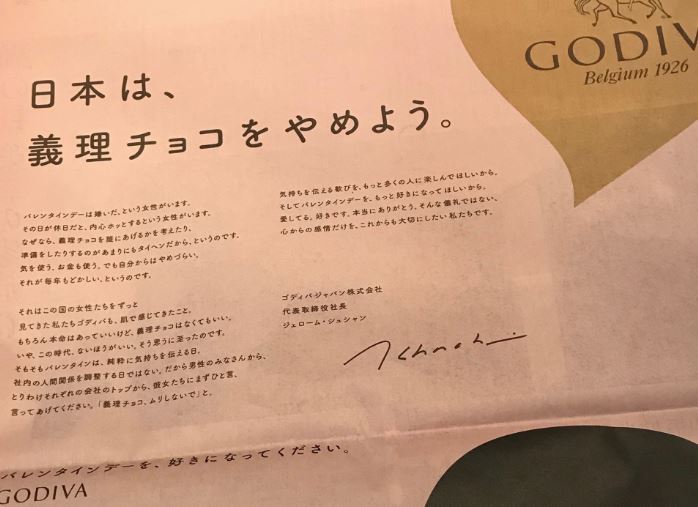 GODIV
Belgium 1926
日本は、
義理チョコをやめよう。
バレンタインデーは嫌いだ、という女性がいます。
その日が休日だと、内心ホッとするという女性がいます。
なぜなら、義理チョコを誰にあげるかを考えたり、
準備をしたりするのがあまりにもタイヘンだから、というのです。
気を使う、お金も使う。でも自分からはやめづらい。
それが毎年もどかしい、というのです。
それはこの国の女性たちをずっと
見てきた私たちゴディバも、肌で感じてきたこと。
もちろん本命はあっていいけど、義理チョコはなくてもいい。
いや、この時代、ないほうがいい。そう思うに至ったのです。
そもそもバレンタインは、純粋に気持ちを伝える日。
社内の人間関係を調整する日ではない。だから男性のみなさんから、
とりわけそれぞれの会社のトップから、彼女たちにまずひと言、
言ってあげてください。「義理チョコ、ムリしないで」と。
気持ちを伝える歓びを、もっと多くの人に楽しんでほしいから。
そしてバレンタインデーを、もっと好きになってほしいから。
愛してる。好きです。本当にありがとう。そんな儀礼ではない、
心からの感情だけを、これからも大切にしたい私たちです。
ゴディバジャパン株式会社
代表取締役社長
ジェローム・シュシャン
バレンタインデーを、好きになってください。
GODIVA